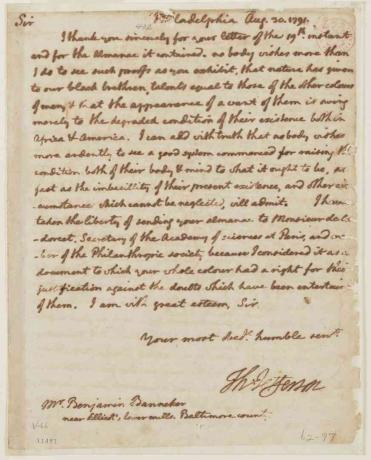 Sir Philadelphia Aug. 30. 1791.
I thank you sincerely for your letter of the 19th. instant
and for the almanac it contained. no body wishes more than
I do to see such proofs as you exhibit, that nature has given
to our black brethren, talents equal to those of the other colours
of men, & that the appearance of a want of them is owing
merely to the degraded condition of their existence both in
Africa & America. I can add with truth that no body wishes
more ardently to see a good system commenced for raising the
condition both of their body & mind to what it ought to be, as
fast as the imbecillity of their present existence, and other cir
cumstance which cannot be neglected, will admit. I have
taken the liberty of sending your almanac to Monsieur de Con
-dorcet, Secretary of the Academy of sciences at Paris, and mem
-ber of the Philanthropic society because I considered it as a
document to which your whole colour had a right for their
justification against the doubts which have been entertained
of them. I am with great esteem, Sir
Your most obedt. humble servt.
Th: Jefferson
Mr. Benjamin Banneker
near Ellicot's, lower mills. Baltimore county.